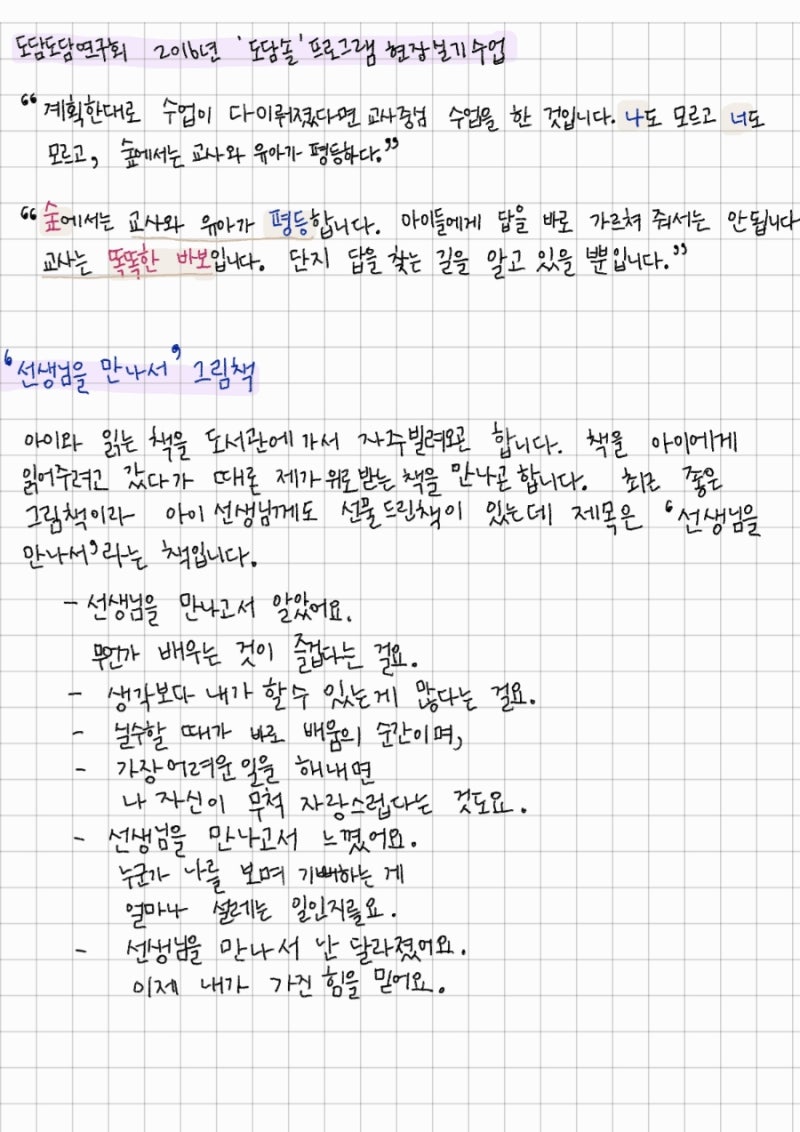 도담도담연구회 2016년 '도담솔' 프로그램 현장실기수업
“계획한대로 수업이 다 이뤄졌다면 교사중심 수업을 한 것입니다. 나도 모르고 너도
모르고, 숲에서는 교사와 유아가 평등하다.”
“숲에서는 교사와 유아가 평등합니다. 아이들에게 답을 바로 가르쳐 줘서는 안됩니다
교사는 똑똑한 바보입니다. 단지 답을 찾는 길을 알고 있을 뿐입니다.”
‘선생님을 만나서’ 그림책
아이와 읽는 책을 도서관에 가서 자주 빌려오곤 합니다. 책을 아이에게
읽어주려고 갔다가 때론 제가 위로 받는 책을 만나곤 합니다. 최근 좋은
그림책이라 아이 선생님께도 선물 드린 책이 있는데 제목은 ‘선생님을
만나서’라는 책입니다.
- 선생님을 만나고서 알았어요.
무언가 배우는 것이 즐겁다는 걸요.
- 생각보다 내가 할 수 있는게 많다는 걸요.
- 실수할 때가 바로 배움의 순간이며,
- 가장 어려운 일을 해내면
나 자신이 무척 자랑스럽다는 것도요.
- 선생님을 만나고서 느꼈어요.
누군가 나를 보며 기뻐하는 게
얼마나 설레는 일인지를요.
- 선생님을 만나서 난 달라졌어요.
이제 내가 가진 힘을 믿어요.